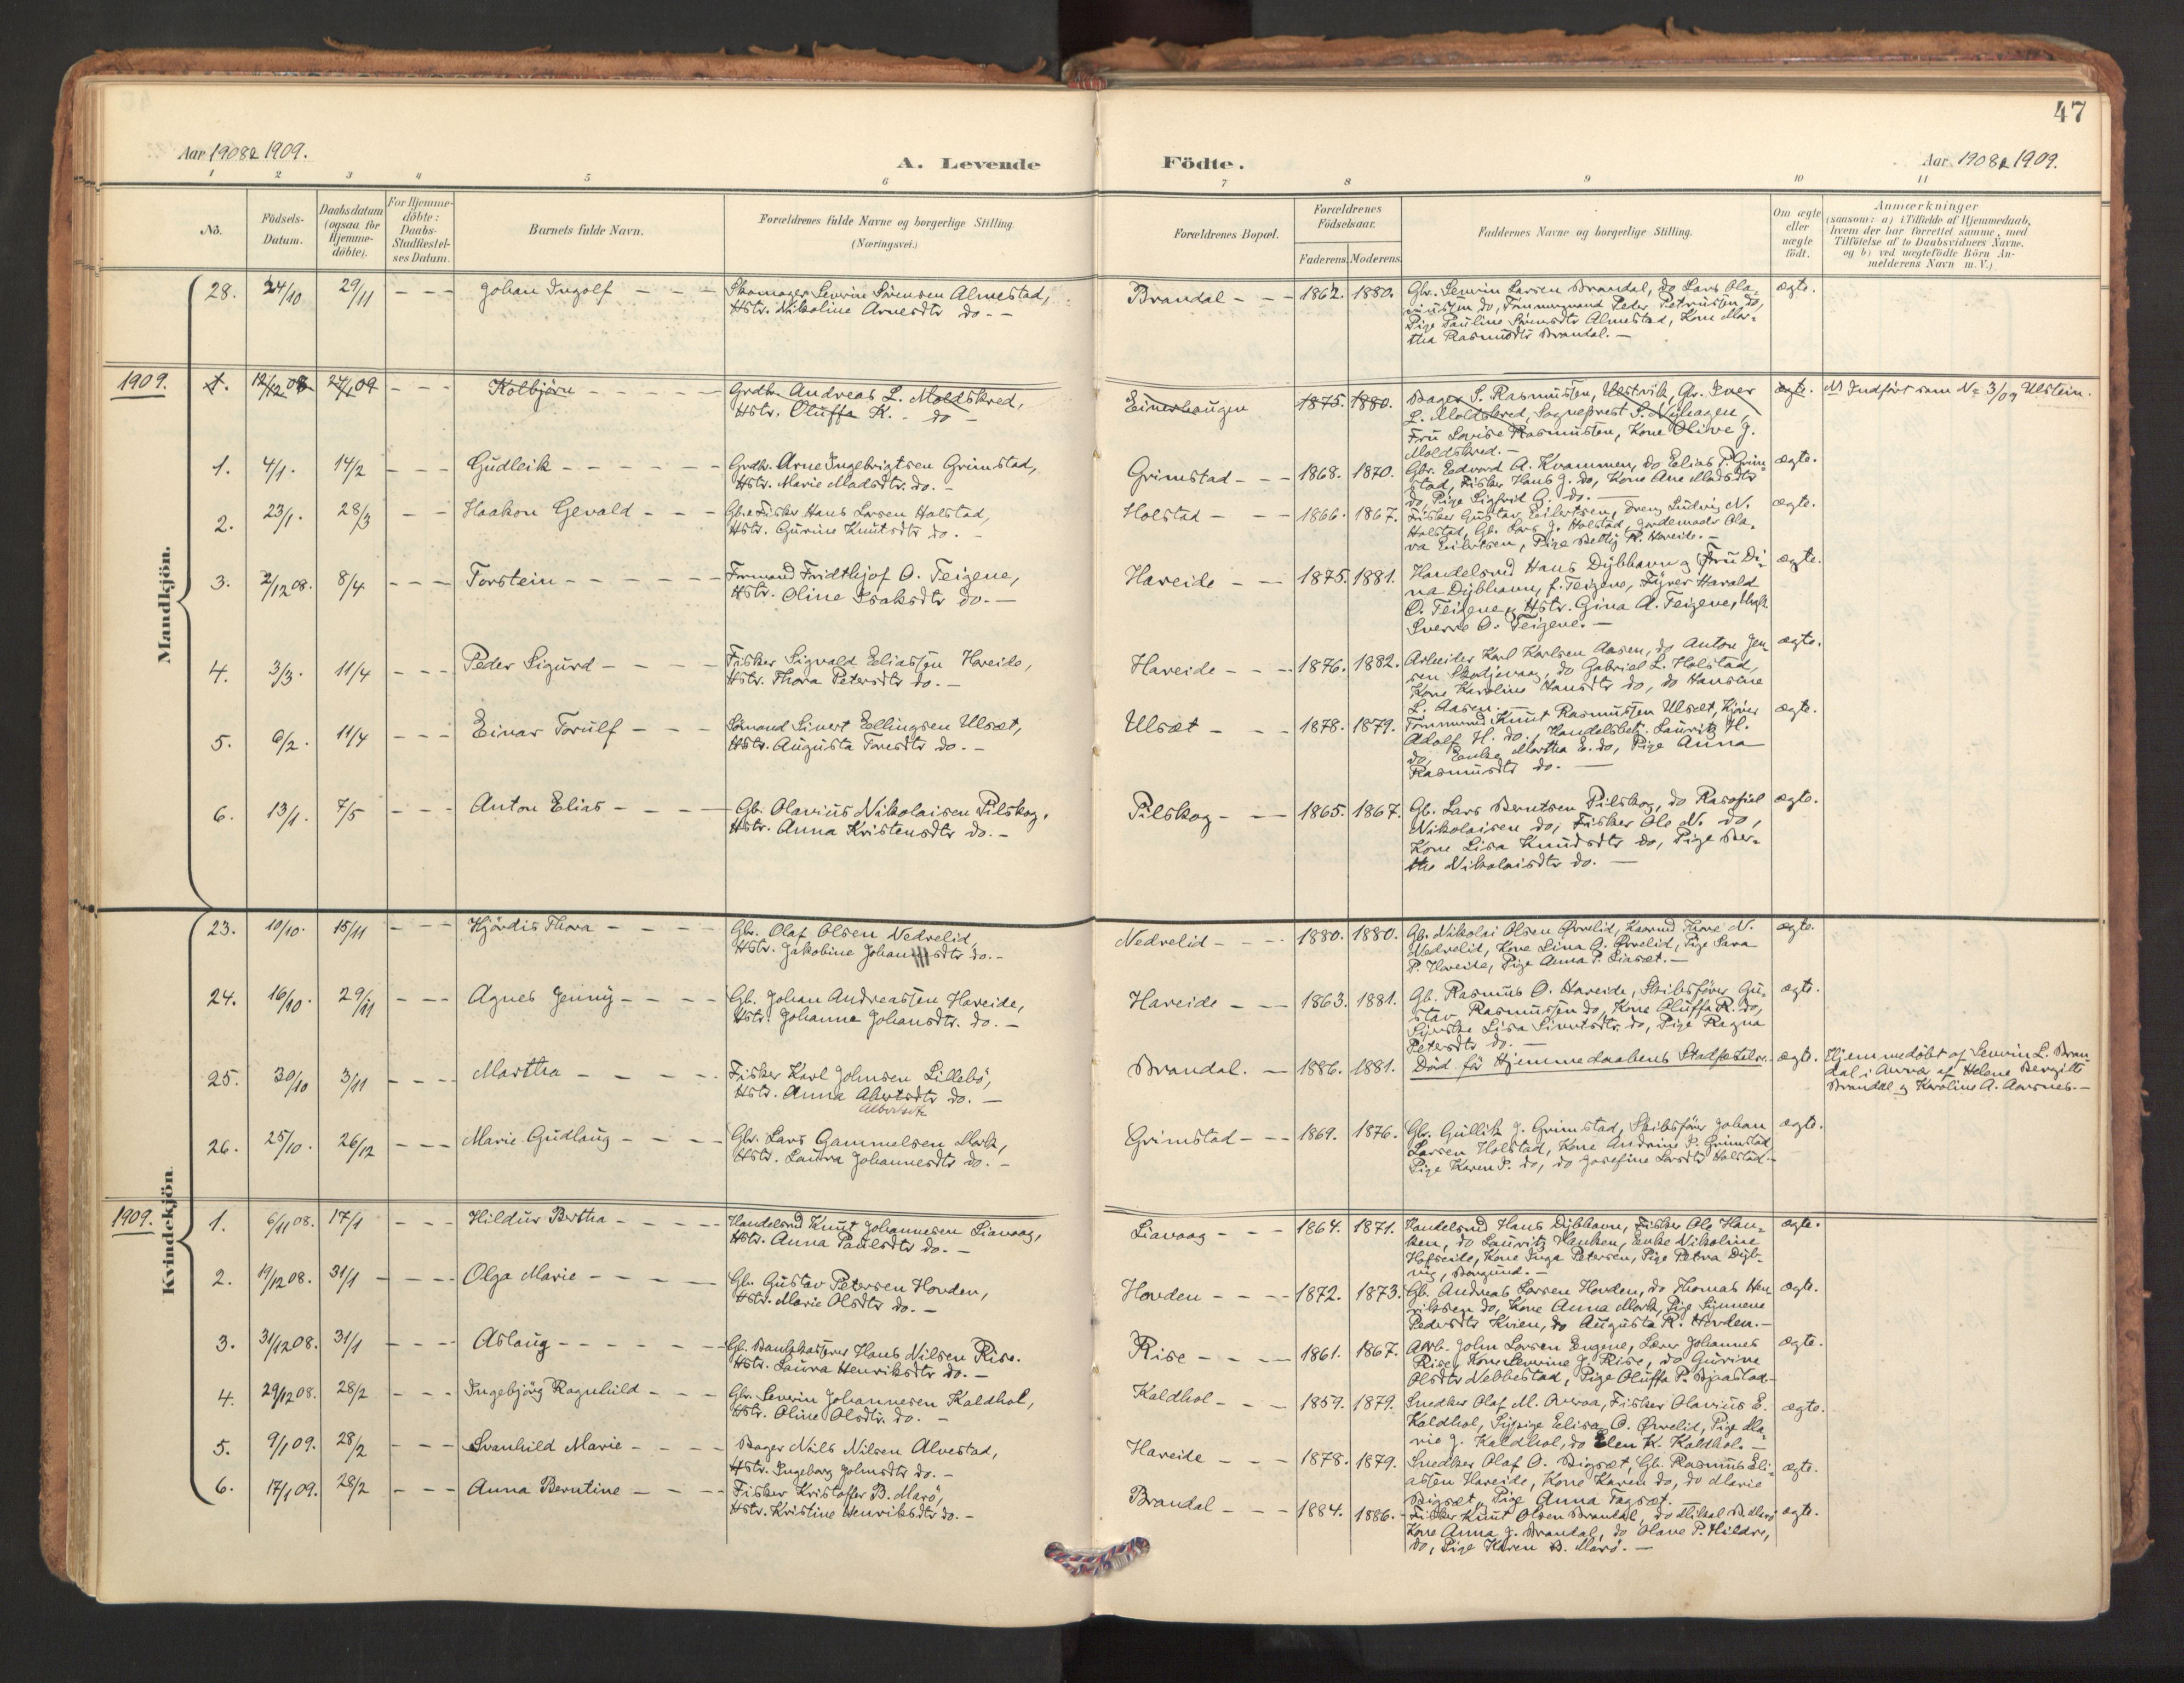 47
Aar 1908 & 1909.
A. Levende Födte.
Aar 1908 & 1909.
1 2 3 4 5 6 7 8 9 10 11
No.
Födsels-Datum.
Daabsdatum (ogsaa for Hjemme-döbte).
For Hjemme-döbte: Daabs-Stadfæstel-ses Datum.
Barnets fulde Navn.
Forældrenes fulde Navne og borgerlige Stilling (Næringsvei.)
Forældrenes Bopæl.
Forældrenes Födselsaar.
Faderens. Moderens.
Faddernes Navne og borgerlige Stilling.
Om ægte eller uægte födt.
Anmærkninger
(saasom: a) i Tilfælde af Hjemmedaab,
hvem der har forrettet samme, med
Tilföielse af to Daabsvidners Navne.
og b) ved uægtefödte Börn An-
melderens Navn m. V.)
Mandkjön.
28. 24/10 29/11 – – – Johan Ingolf – – –
Skomager Severin Sörensen Almestad,
Hstr. Nikoline Arnesdtr do. –
Brandal – – – 1862. 1880.
Gbr. Severin Larsen Brandal, do Lars Ola-
do, Tömmermand Peder Petrusen do,
Pige Pauline Sörensdtr Almestad, Kone Mar-
tha Rasmusdtr Brandal. –
ægte.
1909.
1. 12/12 08 24/1 09 – – – Kolbjörn – – – –
Grdbr. Andreas L. Moldskred,
Hstr. Oluffa K. – do –
Einerhaugen 1875. 1880.
Bager S. Rasmussen, Ulstvik, Gbr. Iver
L. Moldskred, Sogneprest S. Nyhagen,
Fru Lovise Rasmussen, Kone Olive J.
Moldskred. –
ægte. NB Indfört som No 3/09 Ulstein.
1. 4/1. 14/2 – – – Gudleik – – – – –
Grdbr. Arne Ingebrigtsen Grimstad,
Hstr. Marie Madsdtr. do. –
Grimstad – – – 1868. 1870.
Gbr. Edvard A. Kvammen, do Elias P. Grim-
stad, Fisker Hans J. do, Kone Ane Madsdtr
do, Pige Sigfrid G. do. –
ægte.
2. 23/1. 28/3 – – Haakon Gevald – – –
Gb. & Fisker Hans Larsen Holstad,
Hstr. Gurine Knutsdtr do. –
Holstad – – – 1866. 1867.
Fisker Gustav Eilertsen, Dreng Ludvig N.
Holstad, Gb. Lars J. Holstad, Jordemoder Ola-
va Eilertsen, Pige Betty R. Hareide. –
ægte.
3. 2/12 08. 8/4 – – – Torstein – – – – –
Formand Fridthjof O. Teigene,
Hstr. Oline Isaksdtr do. –
Hareide – – 1875. 1881.
Handelsmd Hans Dybhavn og Fru Di-
na Dybhavn, f. Teigene, Fyrer Harald
O. Teigene, Hstr. Gina A. Teigene, Ungk.
Sverre O. Teigene. –
ægte.
4. 3/3. 11/4 – – – Peder Sigurd – – – –
Fisker Sigvald Eliassen Hareide,
Hstr. Thora Petersdtr do. –
Hareide – – – 1876. 1882.
Arbeider Karl Karlsen Aasen, do Anton Jen-
sen Skotjevaag, do Gabriel L. Holstad,
Kone Karoline Hansdtr do, do Hansine
L. Aasen. –
ægte.
5. 6/2. 11/4 – – – Einar Torulf – – –
Sömand Sivert Ellingsen Ulset,
Hstr. Augusta Toresdtr do. –
Ulset – – 1878. 1879.
Tömmermd Knut Rasmussen Ulset, Kjörer
Adolf H. do., Handelsbetj. Lauritz H.
do, Enke Martha E. do, Pige Anna
Rasmusdtr do. –
ægte.
6. 13/1. 7/5 – – – Anton Elias – – – –
Gb. Olavius Nikolaisen Pilskog,
Hstr. Anna Kristensdtr do. –
Pilskog – – – 1865. 1867.
Gb. Lars Berntsen Pilskog, do Rasofiel
Nikolaisen do, Fisker Ole N. do,
Kone Lisa Knudsdtr do, Pige Ber-
the Nikolaisdtr do. –
ægte.
Kvindekjön
23. 10/10. 15/11 – – – Hjördis Thora – – – –
Gbr. Olaf Olsen Nedrelid,
Hstr. Jakobine Johannesdtr do. –
Nedrelid – – – 1880. 1880.
Gb. Nikolai Olsen Övrelid, Kone N.
Nedrelid, Kone Lina O. Övrelid, Pige Sara
P. Hareide, Pige Anna P. Liaset. –
ægte.
24. 16/10. 29/11 – – – Agnes Jenny – – – –
Gb. Johan Andreassen Hareide,
Hstr. Johanne Johansdtr. do. –
Hareide – – – 1863. 1881.
Gb. Rasmus O. Hareide, Skibsförer Gu-
stav Rasmussen do, Kone Oluffa R. do,
Syerske Lisa Sivertsdtr. do, Pige Ragna
Petersdtr do. –
ægte.
25. 30/10 3/11 – – – – Martha – – – –
Fisker Karl Johnsen Lillebö,
Hstr. Anna Abertsdtr do. –
Albertsdtr
Brandal. – 1886. 1881.
Död för Hjemmedaabens Stadfæstelse. ægte.
Hjemmedöbt af Severin L. Bran
dal i Anvær af Helene Bergitte
Brandal og Karoline A. Aarsnes. –
26. 25/10. 26/12 – – – Marie Gudlaug – – – –
Gbr. Lars Gammelsen Mork,
Hstr. Laura Johannesdtr do. –
Grimstad – – – 1869. 1876.
Gbr. Gullik J. Grimstad, Skibsförer Johan
Larsen Holstad, Kone Andrine P. Grimstad,
Pige Karen P. do, do Josefine Larsdtr Holstad –
ægte.
1909.
1. 6/11 08. 17/1 – – – Hildur Bertha – – – –
Handelsmd Knut Johannesen Liavaag,
Hstr. Anna Paulsdtr do. –
Liavaag – – – 1864. 1871.
Handelsmd Hans Dybhavn, Fisker Ole Han-
ken, do Lauritz Hanken, Enke Nikoline
Hofseide, Kone Inga Petersen, Pige Petra Dyb-
vig, Borgund. –
ægte.
2. 19/12 08. 31/1 – – – – Olga Marie – – – –
Gb. Gustav Petersen Hovden,
Hstr. Marie Olsdtr do. –
Hovden – – – – 1872. 1873.
Gb. Andreas Larsen Hovden, do Thomas Hen
riksen do, Kone Anna Mork, Pige Synneve
Pedersdtr Kvien, do Augusta R. Hovden. –
ægte.
3. 31/12 08. 31/1 – – – – Aslaug – – – – –
Gb. Bankkasserer Hans Nilsen Rise.
Hstr. Laura Henriksdtr do. –
Rise – – – 1861. 1867.
Arb. John Larsen Eugene, Lærer Johannes
Rise, Kone Severine J. Rise, do Gurine
Olsdtr Nebbestad, Pige Oluffa P. Bjaastad. –
ægte.
4. 29/12 08. 28/2 – – – Ingebjörg Ragnhild – – –
Gbr. Severin Johannesen Kaldhol,
Hstr. Oline Olsdtr. do. –
Kaldhol – – – 1859. 1879.
Snedker Olaf M. Overaa, Fisker Olavius E.
Kaldhol, Sypige Elisa O. Övrelid, Pige Ma-
rie J. Kaldhol, do Elen K. Kaldhol. –
ægte.
5. 9/1 09. 28/2 – – – Svanhild Marie – – – –
Bager Nils Nilsen Alvestad,
Hstr. Ingeborg Johnsdtr do. –
Hareide – – – 1878. 1879.
Snedker Olaf O. Bigset, Gb. Rasmus Eli-
assen Hareide, Kone Karen do, do Marie
Bigset, Pige Anna Tagset.
ægte.
6. 17/1 09. 28/2 – – – Anna Berntine – – – –
Fisker Kristoffer B. Marö,
Hstr. Kristine Henriksdtr do. –
Brandal – – – 1884. 1886. –
Fisker Knut Olsen Brandal, do Mikal B. Marö
Kone Anna J. Brandal, do Olave P. Hildre,
do, Pige Karen B. Marö. –
ægte.